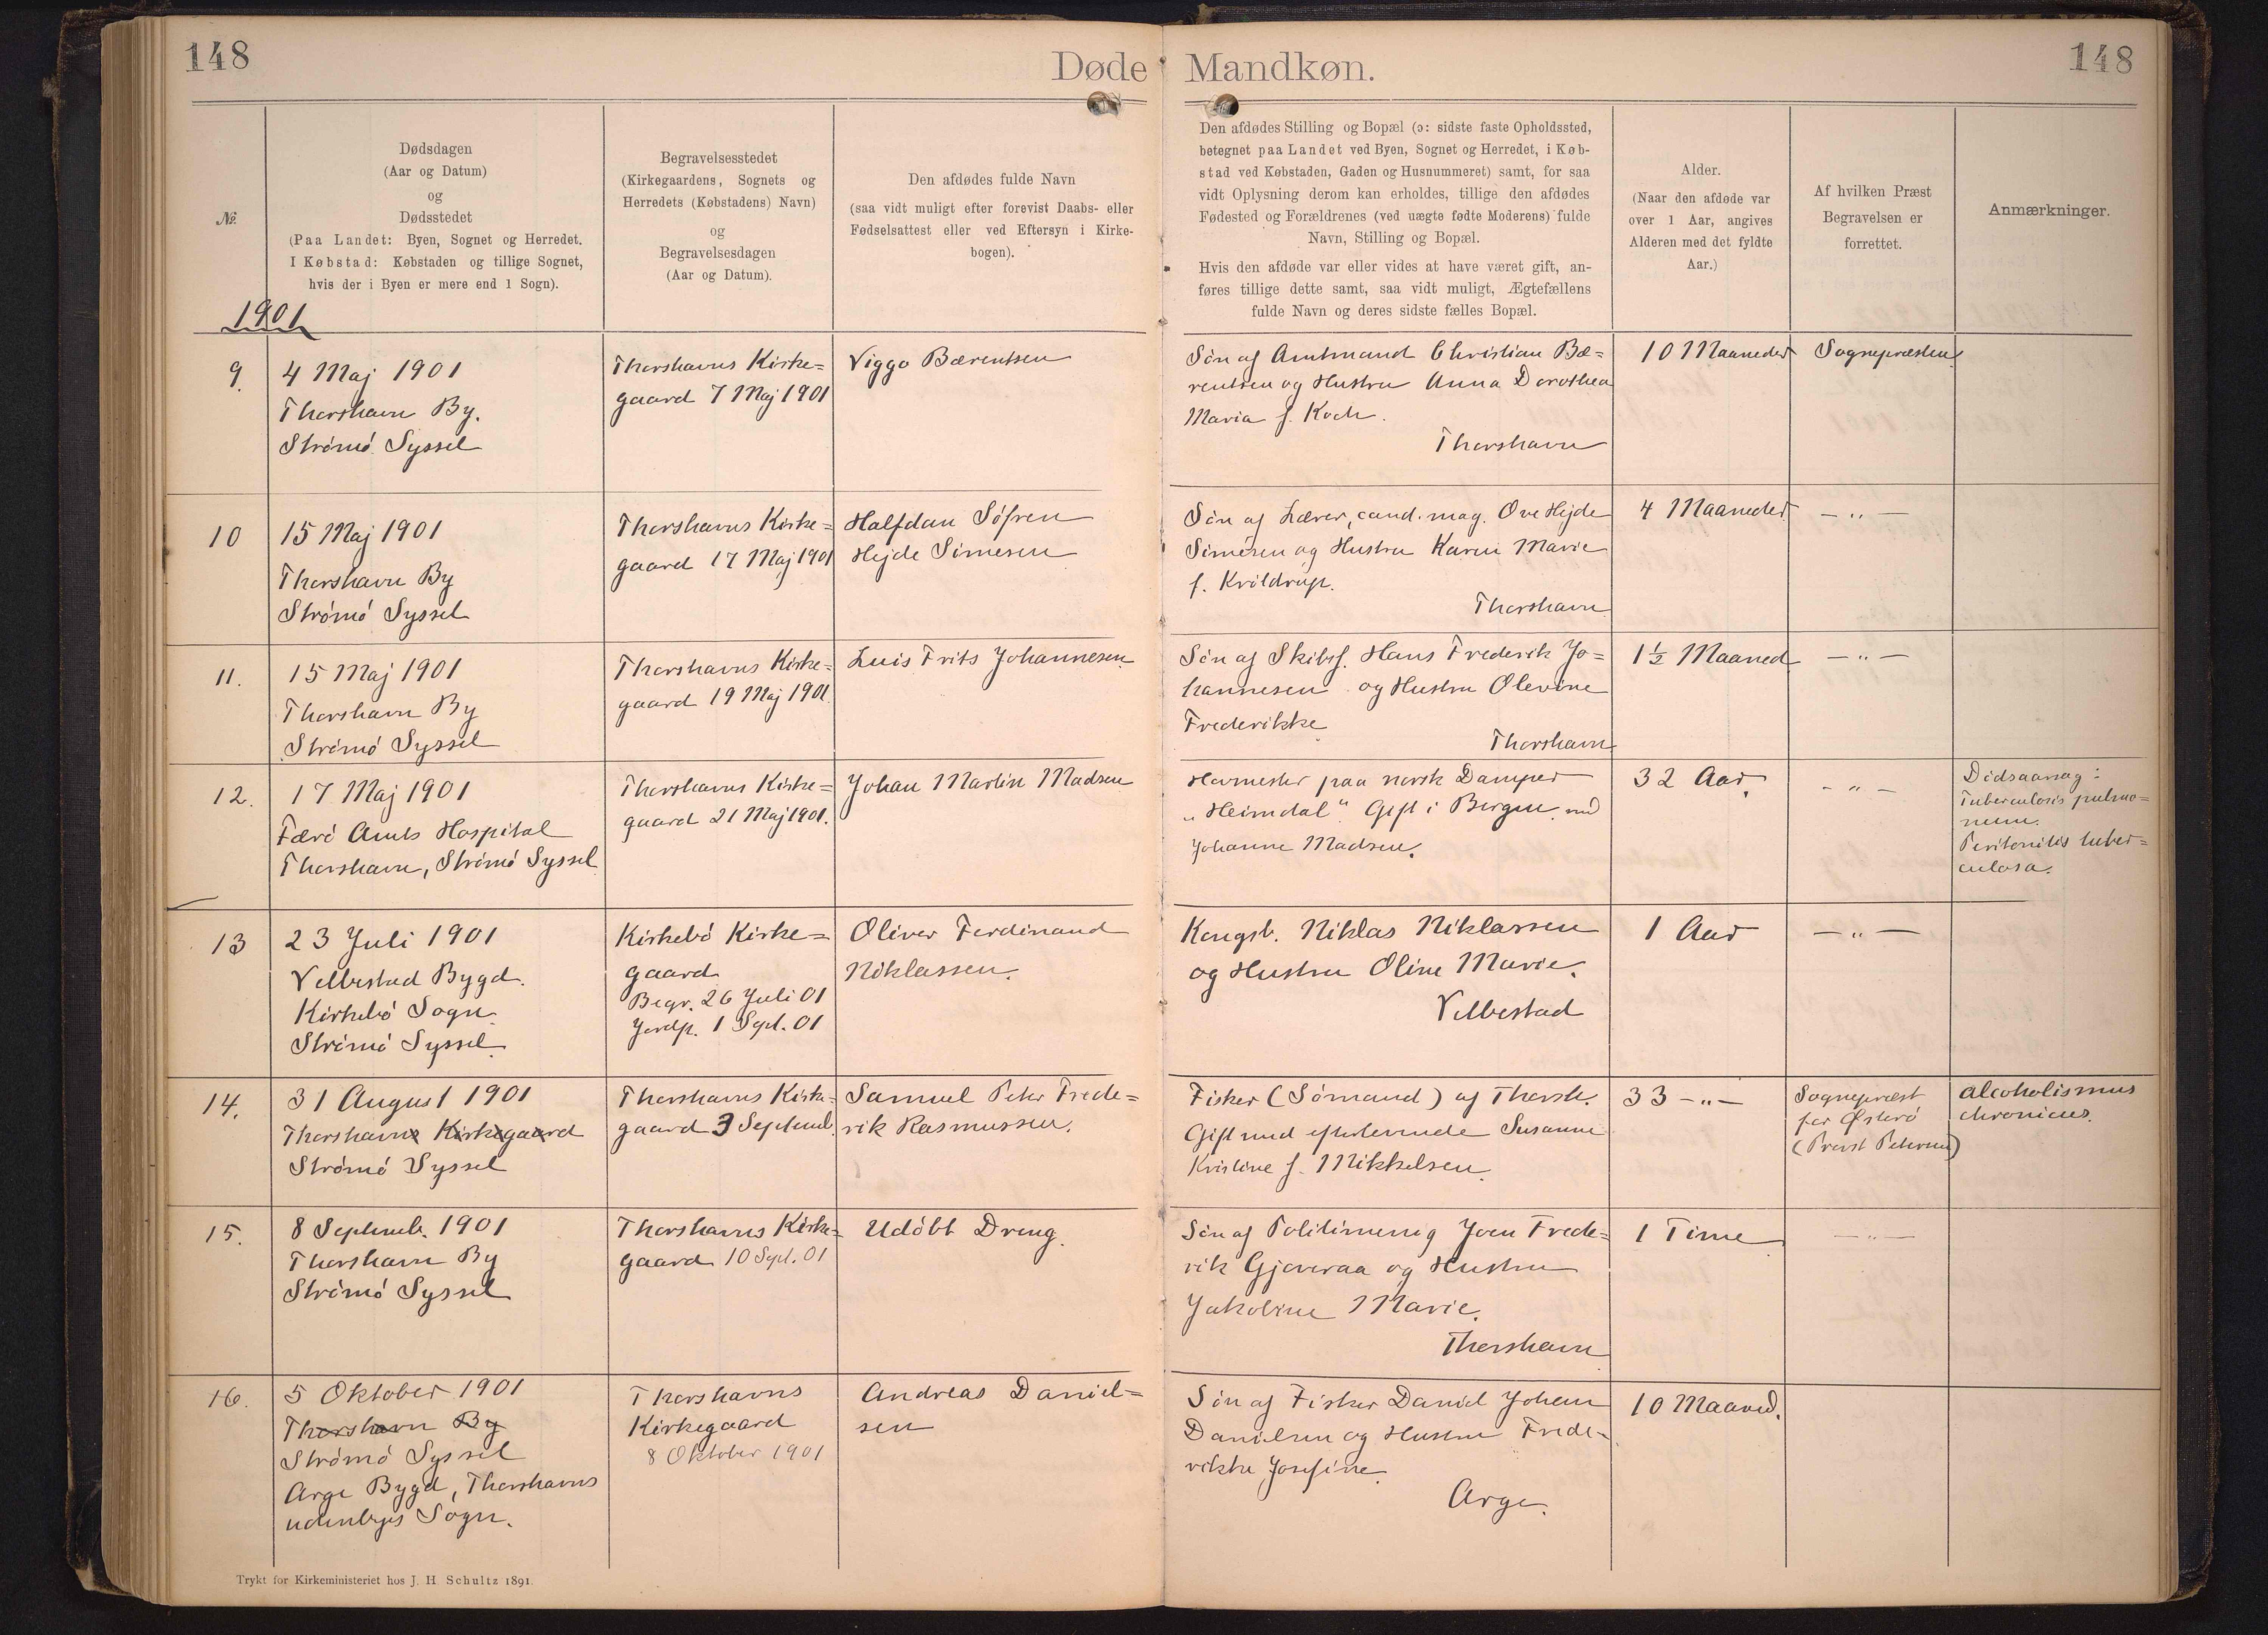 148
Døde Mandkøn.
148
№
Dødsdagen
(Aar og Datum)
og
Dødsstedet
(Paa Landet: Byen, Sognet og Herredet.
I Købstad: Købstaden og tillige Sognet,
hvis der i Byen er mere end 1 Sogn).
Begravelsesstedet
(Kirkegaardens, Sognets og
Herredets (Købstadens) Navn)
og
Begravelsesdagen
(Aar og Datum).
Den afdødes fulde Navn
(saa vidt muligt efter forevist Daabs- eller
Fødselsattest eller ved Eftersyn i Kirke-
bogen).
Den afdødes Stilling og Bopæl (ɔ: sidste faste Opholdssted,
betegnet paa Landet ved Byen, Sognet og Herredet, i Køb-
stad ved Købstaden, Gaden og Husnummeret) samt, for saa
vidt Oplysning derom kan erholdes, tillige den afdødes
Fødested og Forældrenes (ved uægte fødte Moderens) fulde
Navn, Stilling og Bopæl.
Hvis den afdøde var eller vides at have været gift, an-
føres tillige dette samt, saa vidt muligt, Ægtefællens
fulde Navn og deres sidste fælles Bopæl.
Alder.
(Naar den afdøde var
over 1 Aar, angives
Alderen med det fyldte
Aar.)
Af hvilken Præst
Begravelsen er
forrettet.
Anmærkninger.
1901
9.
4 Maj 1901
Thorshavn By.
Strømø Syssel
Thorshavns Kirke=
gaard 7 Maj 1901
Viggo Bærentsen
Søn af Amtmand Christian Bæ=
rentsen og Hustru Anna Dorothea
Maria f. Koch.
Thorshavn
10 Maaneder
Sognepræsten
10
15 Maj 1901
Thorshavn By
Strømø Syssel
Thorshavns Kirke=
gaard 17 Maj 1901
Halfdan Søfren
Hejde Simesen
Søn af Lærer, cand. mag. Ove Hejde
Simesen og Hustru Karen Marie
f. Kvoldrup.
Thorshavn
4 Maaneder
— „ —
11.
15 Maj 1901
Thorshavn By
Strømø Syssel
Thorshavns Kirke=
gaard 19 Maj 1901.
Luis Frits Johannesen
Søn af Skibsf. Hans Frederik Jo=
hannesen og Hustru Olevine
Frederikke
Thorshavn
1½ Maaned
— „ —
12.
17 Maj 1901
Færø Amts Hospital
Thorshavn, Strømø Syssel
Thorshavns Kirke=
gaard 21 Maj 1901.
Johan Martin Madsen
Hovmester paa norsk Damper
„Heimdal“. Gift i Bergen med
Johanne Madsen.
32 Aar.
— „ —
Dødsaarsag:
Tuberculosis pulmo=
num.
Peritonitis tuber=
culosa.
13
23 Juli 1901
Velbestad Bygd.
Kirkebø Sogn
Strømø Syssel
Kirkebø Kirke=
gaard
Begr. 26 Juli 01
Jordp. 1 Sept. 01
Oliver Ferdinand
Niklassen.
Kongsb. Niklas Niklassen
og Hustru Oline Marie.
Velbestad
1 Aar
— „ —
14.
31 August 1901
Thorshavns Kirkegaard
Strømø Syssel
Thorshavns Kirke=
gaard 3 Septemb.
Samuel Peter Frede=
rik Rasmussen.
Fisker (Sømand) af Thorsh.
Gift med efterlevende Susanne
Kristine f. Mikkelsen.
33 — „ —
Sognepræst
for Østerø
(Provst Petersen)
alcoholismus
chronicus.
15.
8 Septemb. 1901
Thorshavn By
Strømø Syssel
Thorshavns Kirke=
gaard 10 Sept. 01
Udøbt Dreng.
Søn af Politimenig Joen Frede=
rik Gjoveraa og Hustru
Jakobine Marie.
Thorshavn
1 Time
— „ —
16.
5 Oktober 1901
Thorshavn By
Strømø Syssel
Arge Bygd, Thorshavns
udenbyes Sogn.
Thorshavns
Kirkegaard
8 Oktober 1901
Andreas Daniel=
sen
Søn af Fisker Daniel Johan
Danielsen og Hustru Frede=
rikke Josefine
Arge.
10 Maaned.
Trykt for Kirkeministeriet hos J. H. Schultz 1891.